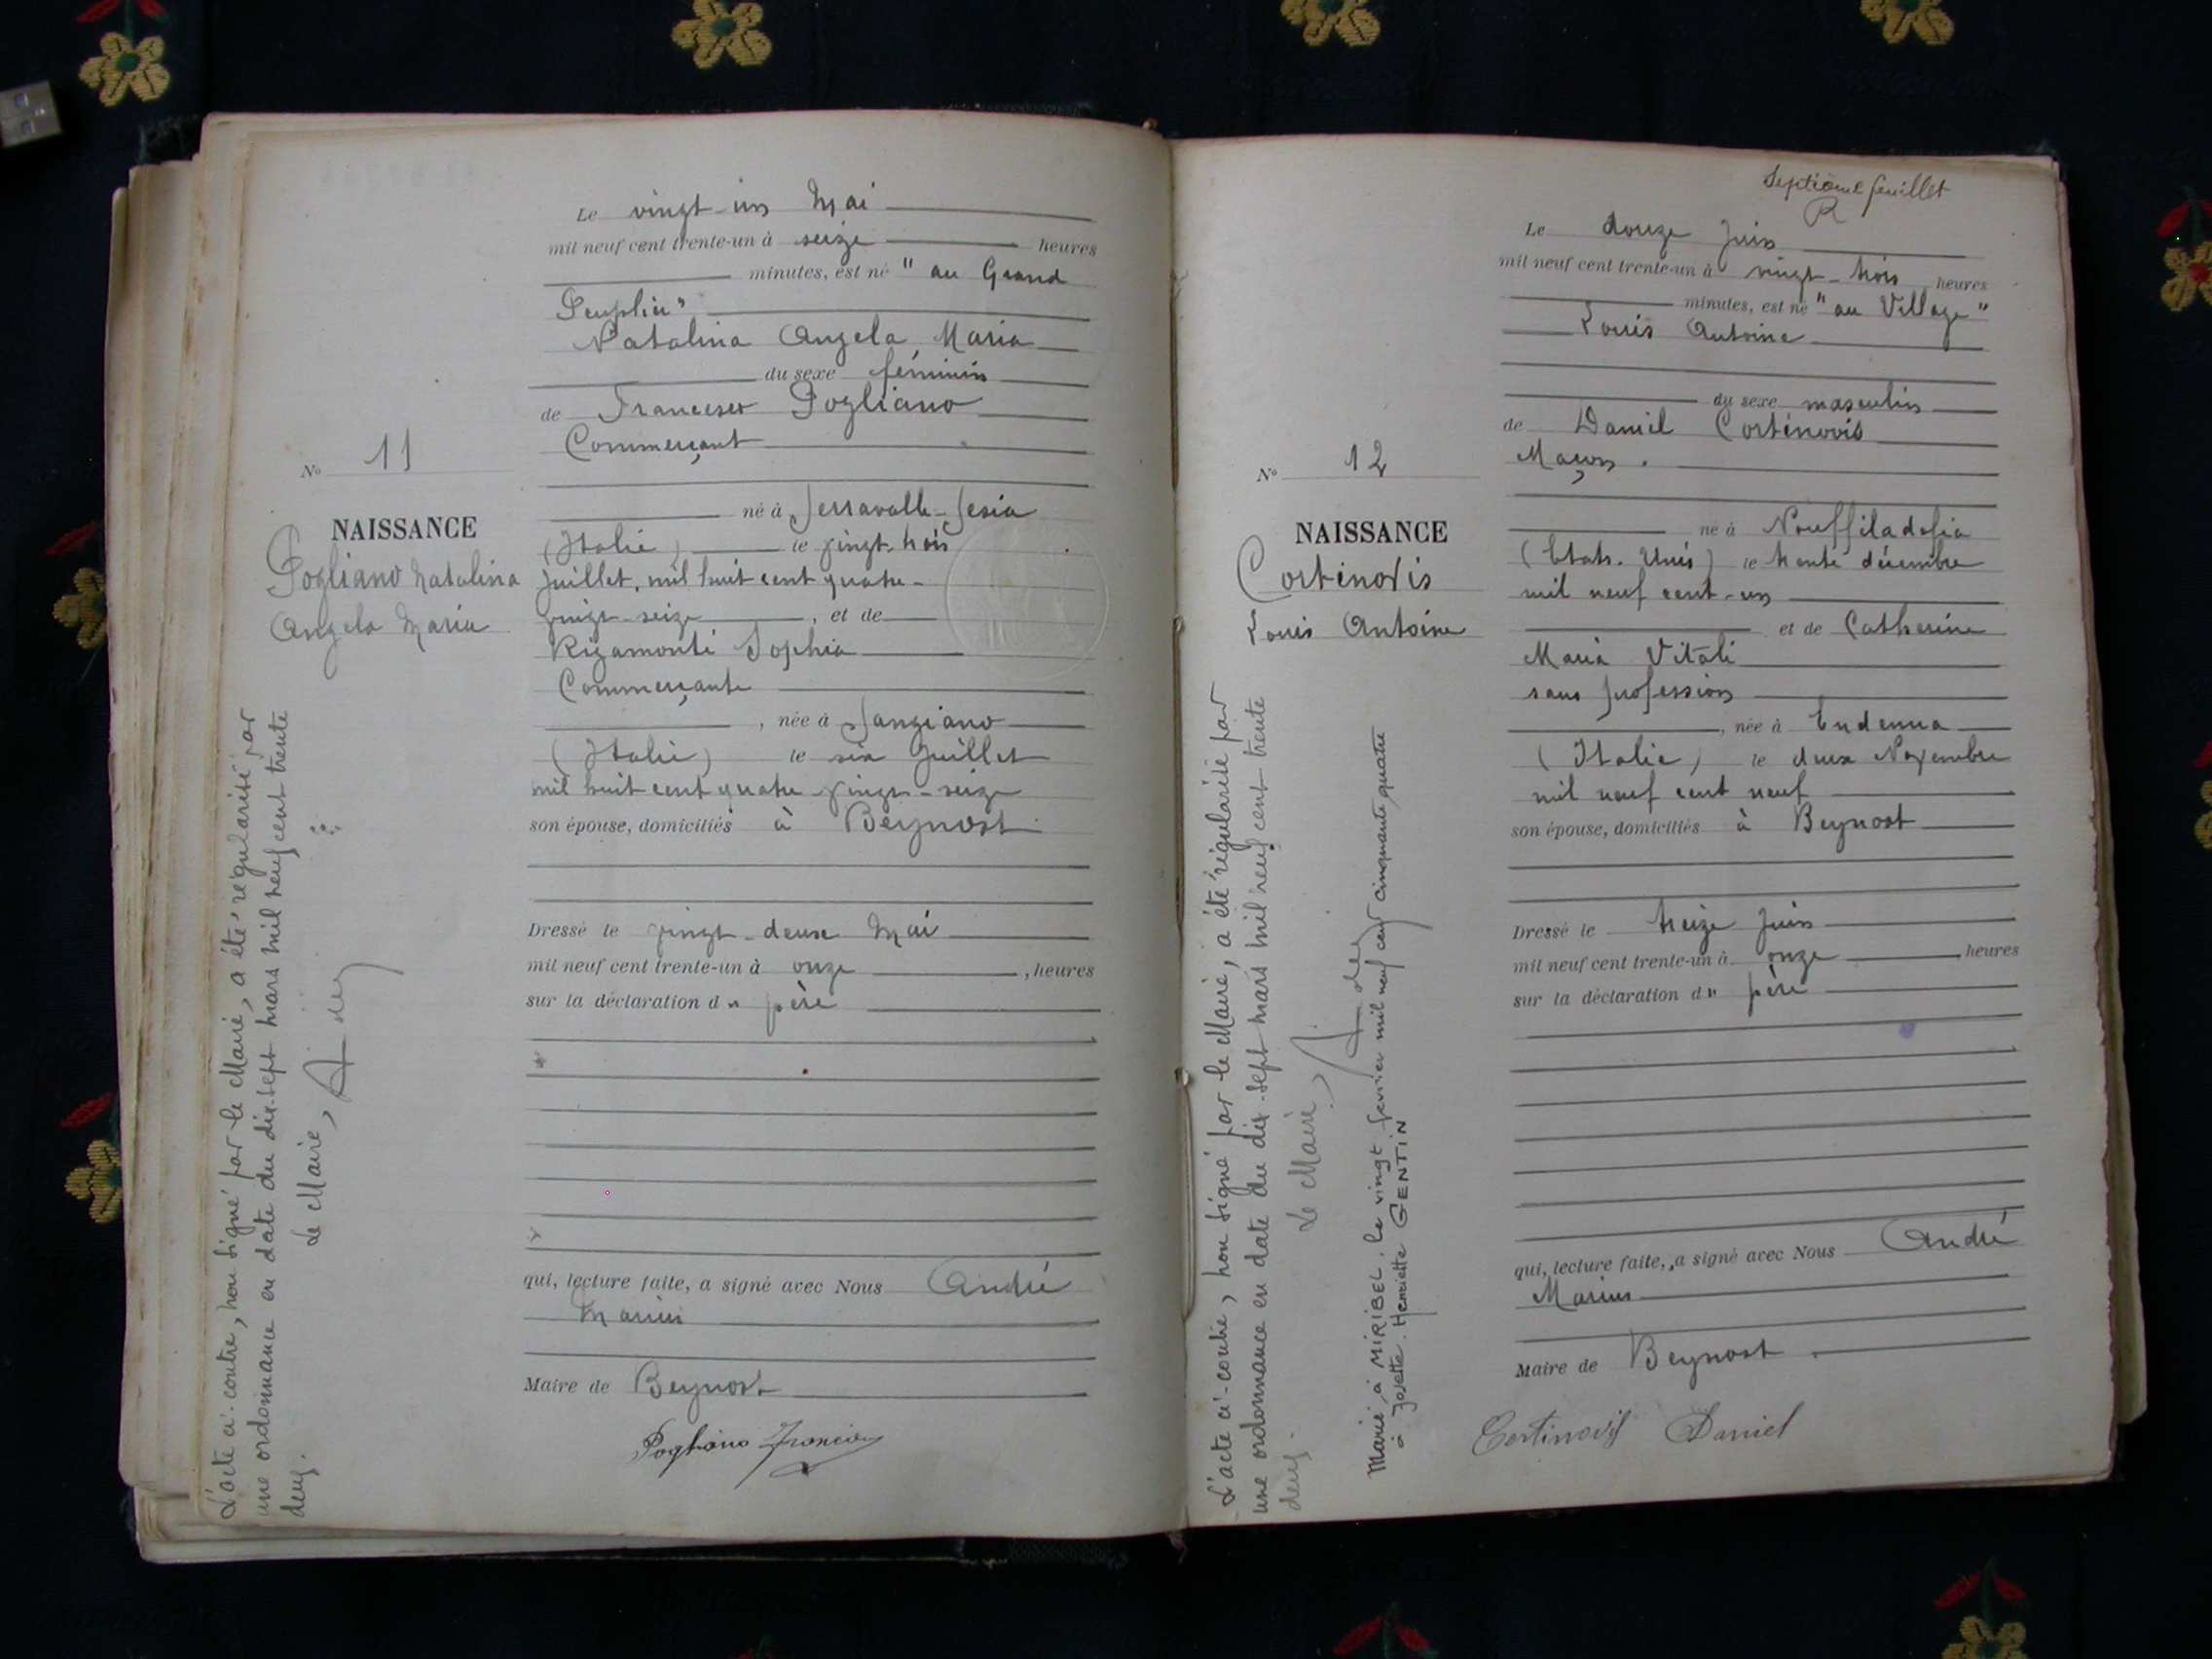 Le vingt-un Mai
mil neuf cent trente-un à seize heures
minutes, est né "au Grand
Peuplier"
Natalina Angela Maria
du sexe féminin
de Francesco Pogliano
Commerçant
né à Serravalle-Sesia
(Italie) le vingt-trois
juillet, mil huit cent quatre-
vingt-seize, et de
Rizamonti Sophia
Commerçante
, née à Sangiano
(Italie) le six Juillet
mil huit cent quatre vingt-seize
son épouse, domiciliés à Beynost
Dressé le vingt-deux Mai
mil neuf cent trente-un à onze, heures
sur la déclaration du père
qui, lecture faite, a signé avec Nous André
Marius
Maire de Beynost
Pogliano
No 11
NAISSANCE
Pogliano Natalina
Angela Maria
L'acte ci-contre, non signé par le Maire, a été régularisé par
une ordonnance en date du dix-sept mars mil neuf cent trente
deux.
Le Maire,
Septième feuillet
Le douze Juin
mil neuf cent trente-un à vingt-trois heures
minutes, est né "au Village"
Louis Antoine
du sexe masculin
de Daniel Cortinovis
Maçon.
né à Nouffiladefia
(Etats-Unis) le trente décembre
mil neuf cent-un
et de Catherine
Maria Vitali
sans profession
, née à Endenna
(Italie) le deux Novembre
mil neuf cent neuf
son épouse, domiciliés à Beynost
Dressé le treize Juin
mil neuf cent trente-un à onze, heures
sur la déclaration du père
qui, lecture faite, a signé avec Nous André
Marius
Maire de Beynost
Cortinovis Daniel
No 12
NAISSANCE
Cortinovis
Louis Antoine
L'acte ci-contre, non signé par le Maire, a été régularisé par
une ordonnance en date du dix-sept mars mil neuf cent trente
deux.
Le Maire,
Marié à MIRIBEL, le vingt février mil neuf cent cinquante quatre
à Josette Henriette GENTIN